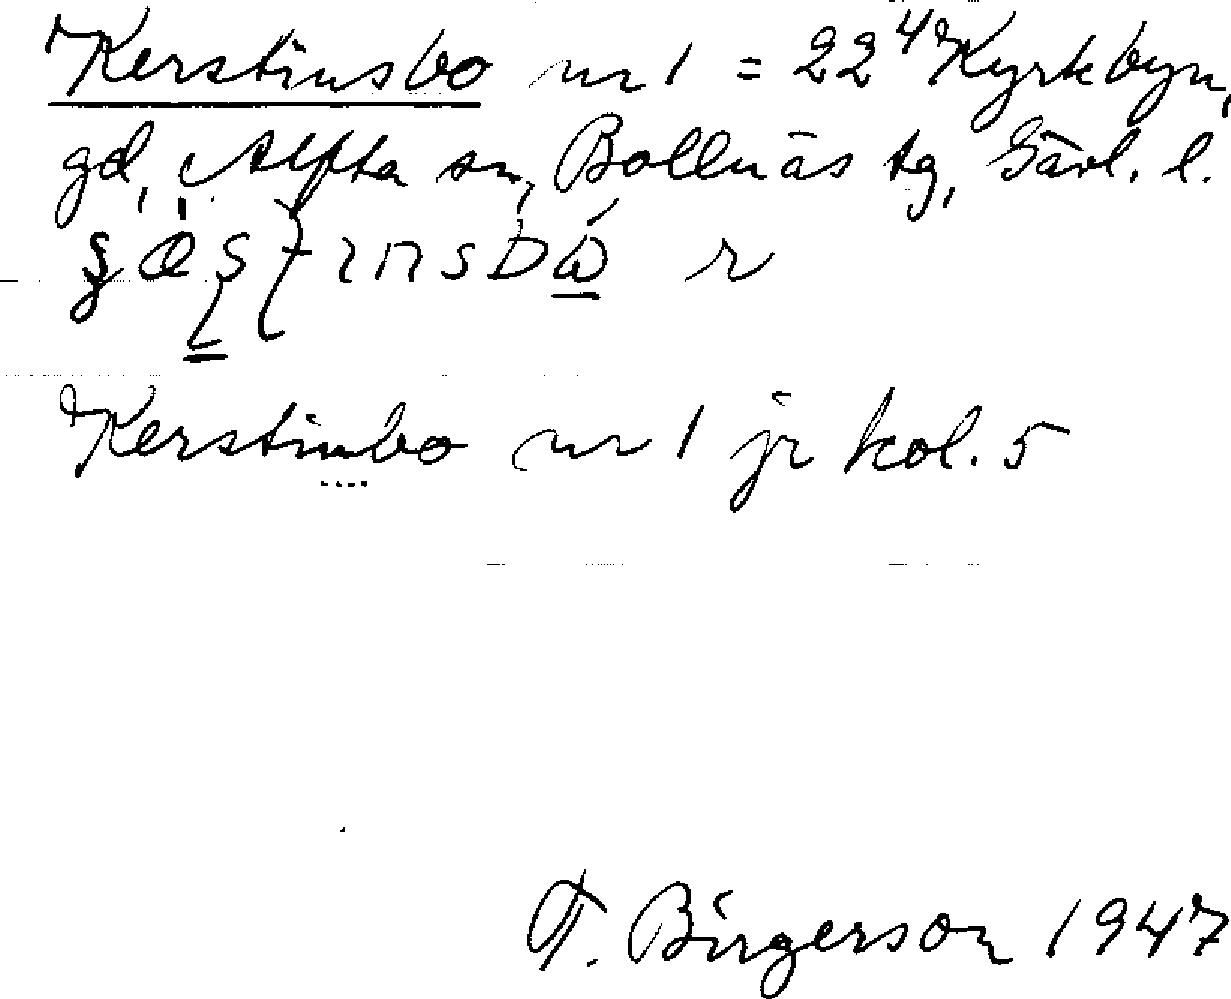 Kerstinsbo nr 1 = 22⁴ Kyrkbyn,
gd, Alfta sn, Bollnäs tg, Gävl. l.
r
Kerstinbo nr 1 jr kol. 5
T. Birgerson 1947